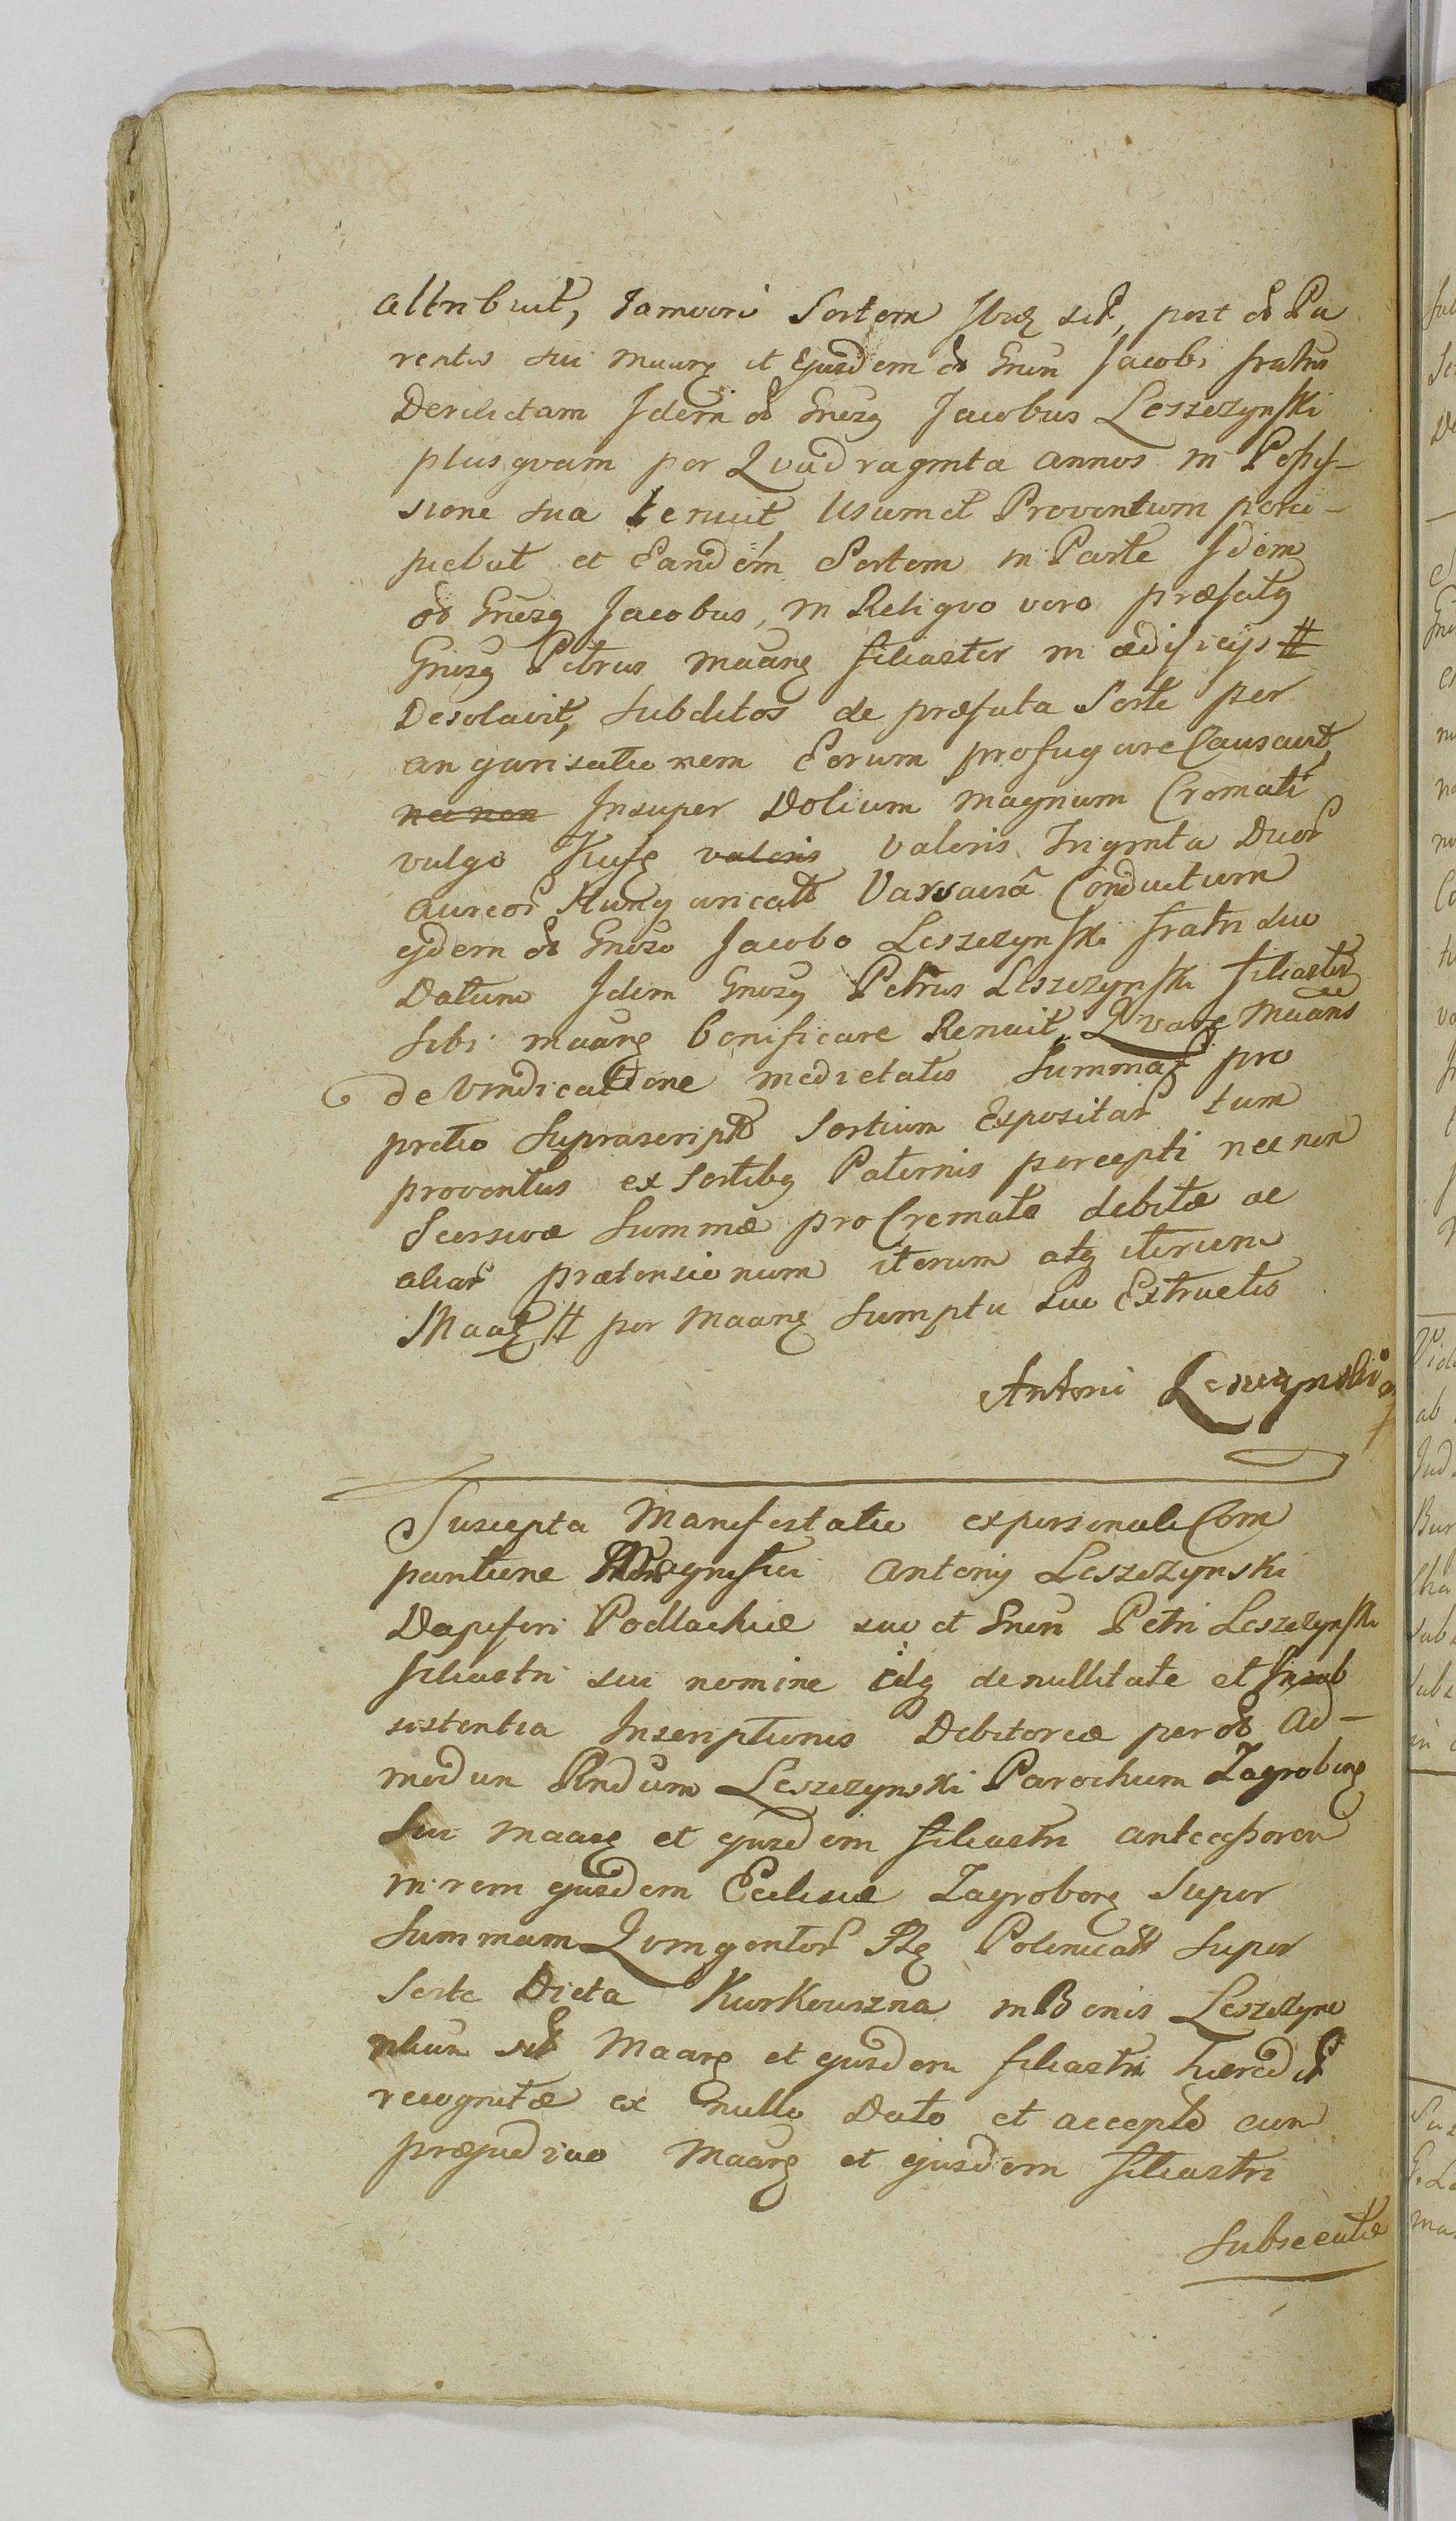 attribuit, Jamvero Sortem
rentis sui Maarg et Ejusdem Jacobi fratris
Derelictam Idem Jacobus Leszczynski
plusquam per Quadraginta annos in Posses-
sione sua tenuit, Usum et Proventum perci-
piebat et Eandem Sortem in Parte Idem
Jacobus, in Reliquo vero præfatg
Gnosg Petrus Maarg filiaster in ædificijs #
Desolavit, Subditos de præfata Sorte per
angarisationem Eorum profugare Causavit
nec non Insuper Dolium Magnum Cremati
vulgo Kufę valoris valoris Triginta Duor
aureor Hungaricalt Varsaviã Conductum
ejdem Gnoso Jacobo Leszczynski fratri suo
Datum Idem Gnosg Petrus Leszczynski filiaster
sibi maarg bonificare Renuit, Qvare Maans
de Vindicatione medietatis Summar pro
pretio Suprascript Sortium Expositar tum
proventus ex Sortibg Paternis percepti nec non
Seorsivæ Summæ pro Cremato debitæ ac
aliar prætensionum iterum atg iterum
Maarg # per Maarg Sumptu suo Extructis
Antoni Leszczynski
Suscepta Manifestatio ex personali Com
paritione Magnifici Antonij Leszczynski
Dapiferi Podlachiæ suo et Petri Leszczynski
filiastri sui nomine idg de nullitate et Insub
sistentia Inscriptionis Debitoriæ per Ad-
modum Rndum Leszczynski Parochum Zagrobeng
sui Maarg et ejusdem filiastri antecessorem
in rem ejusdem Ecclesiæ Zagrobeng Super
Summam Qvingentor Polonicalt Super
Sorte Dicta Kurkowszna in Bonis Leszczyne
Maarg et ejusdem filiastri hæredit
recognitæ ex nullo Dato et accepto cum
præjudicio Maarg et ejusdem filiastri
Subsecutæ